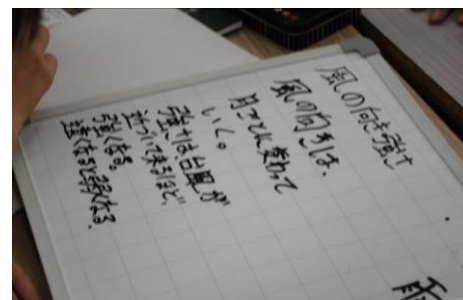 風の向き強さ
風の向きは、
日ごとに変わって
いく。
強さは、台風が
近づいて来るほど、
強くなる。
遠くなると弱くなる.
雨